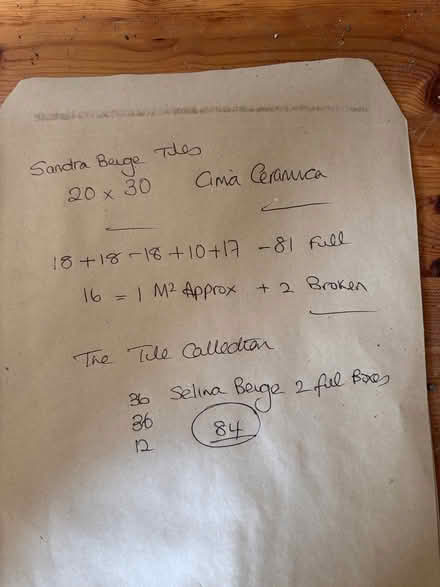 Sandra Beige Tiles
20 x 30 Cima Ceramica
18 + 18 - 18 + 10 + 17 - 81 Full
16 = 1 M² Approx + 2 Broken
The Tile Collection
36 Selina Beige 2 full Boxes
36
84
12